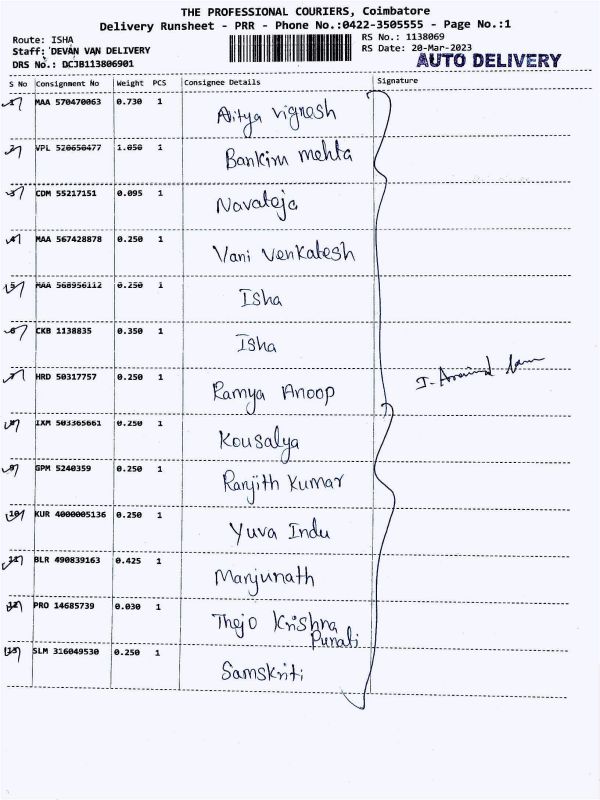 THE PROFESSIONAL COURIERS, Coimbatore
Delivery Runsheet - PRR - Phone No.:0422-3505555 - Page No.:1
Route: ISHA
Staff: DEVAN VAN DELIVERY
DRS No.: DCJB113806901
RS No.: 1138069
RS Date: 20-Mar-2023
AUTO DELIVERY
S No Consignment No Weight PCS Consignee Details Signature
1 MAA 570470063 0.730 1 Aitya vignesh
2 VPL 520650477 1.050 1 Bankim mehta
3 CDM 55217151 0.095 1 Navateja
4 MAA 567428878 0.250 1 Vani Venkatesh
5 MAA 568956112 0.250 1 Isha
6 CKB 1138835 0.350 1 Isha
7 HRD 50317757 0.250 1 Ramya Anoop
8 IXM 503365661 0.250 1 Kousalya
9 GPM 5240359 0.250 1 Ranjith Kumar
10 KUR 4000005136 0.250 1 Yuva Indu
11 BLR 490839163 0.425 1 Manjunath
12 PRO 14685739 0.030 1 Thejo Krishna
Punati
13 SLM 316049530 0.250 1 Samskriti